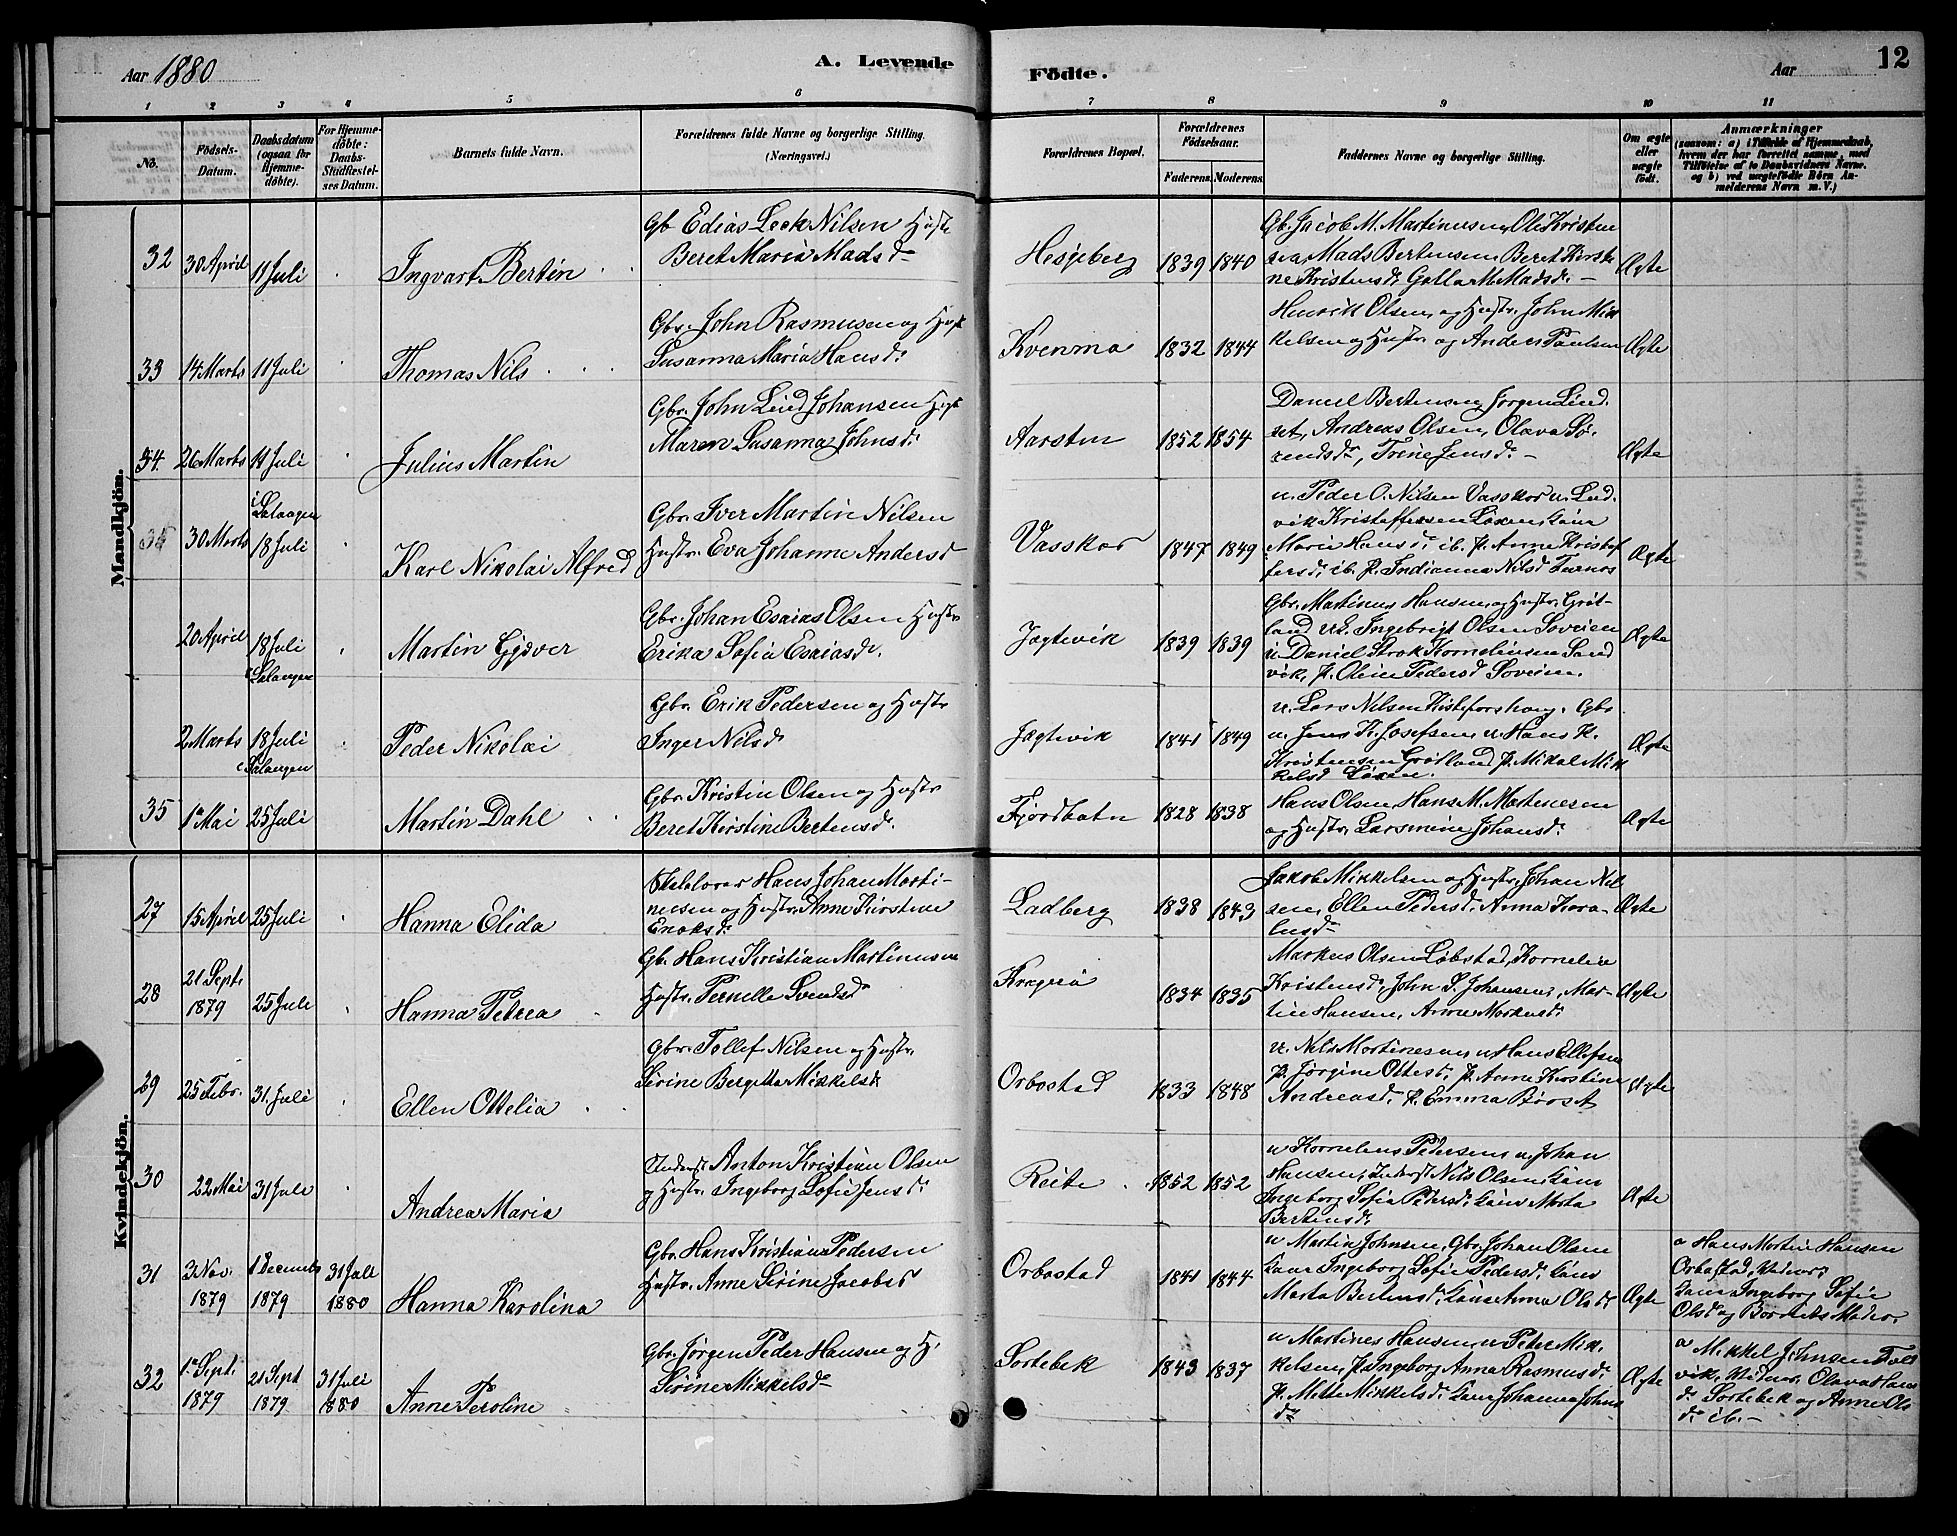 Aar 1880
A. Levende
Födte.
Aar
12
1 2 3 4 5 6 7 8 9 10 11
No.
Födsels-
Datum.
Daabsdatum
(ogsaa for
Hjemme-
döbte).
For Hjemme-
döbte:
Daabs-
Stadfæstel-
ses Datum.
Barnets fulde Navn.
Forældrenes fulde Navne og borgerlige Stilling.
(Næringsvei.)
Forældrenes Bopæl.
Forældrenes
Födselsaar.
Faderens. Moderens.
Faddernes Navne og borgerlige Stilling.
Om ægte
eller
uægte
födt.
Anmærkninger
(saasom: a) i Tilfælde af Hjemmedaab,
hvem der har forrettet samme, med
Tilföielse af to Daabsvidners Navne,
og b) ved uægtefödte Börn An-
melderens Navn m. V.)
Mandkjön.
32 30 April 11 Juli Ingvart Bertin
Gb Edias Leek Nilsen Hustr
Beret Maria Madsd
Hesjeberg 1839 1840
Gb. Jacob M. Martinusen, Ole Kristen
sen Mads Bertensen Beret Kirsti
ne Kristensd.
Ægte
33 14 Marts 11 Juli Thomas Nils
Gbr. John Rasmusen og Hustr
Susanna Maria Hansd.
Kvenmo 1832 1844
Henrik Olsen og Hustr. John Mik
kelsen og Hustr og Anders Paulsen
Ægte
34. 26 Marts 11 Juli Julius Martin
Gbr. John Lind Johansen Hust
Maren Susanna Johnsd.
Aarsten 1852 1854
Daniel Bertensen, Jørgen Lind
set, Andreas Olsen, Olava Sø-
rensd, Trine Jensd.
Ægte
35 30 Marts i Salangen 18 Juli Karl Nikolai Alfred
Gbr. Iver Martin Nilsen
Hustr. Eva Johanne Andersd
Vasskar 1847 1849
u. Peder O. Nilsen Vasskar u. Lud
vik Kristoffersen Løxen, Kone
Marie Hansd. ib. p. Anne Kristof
fersd. ib. p. Indianna Nilsd
Ægte
20 April 18 Juli Salangen Martin Gjøver
Gbr. Johan Esaias Olsen Hustr
Erika Sofia Esaiasd.
Jagtevik 1839 1839
Gbr. Martinus Hansen og Hustr. Grøt-
land Ingebrigt Olsen Soveien
u. Daniel Strok Kornelinsen Sand
vik, p. Oline Pedersd Soveien.
Ægte
2 Marts 18 Juli Salangen Peder Nikolai
Gbr. Erik Pedersen og Hustr
Inger Nilsd
Jagtevik 1841 1849
u. Lars Nilsen Gbr
u. Jens K. Josefsen, u. Hans K.
Kristensen Grøtland p. Mikal Mik
kelsd Løxen.
Ægte
35 1 Mai 25 Juli Martin Dahl
Gbr. Kristin Olsen og Hustr
Beret Kirstine Bertensd.
Fjordbotn 1828 1838
Hans Olsen, Hans M. Martinesen
og Hustr, Larsmine Johansd.
Ægte
Kvindekjön.
27 15 April 25 Juli Hanna Elida
Skolelærer Hans Johan Marti-
nusen og Hustr. Anne Kirstine
Enoksd.
Ladberg 1838 1843
Jakob Mikkelsen og Hustr. Johan Nil
sen, Ellen Pedersd. Anna
Ægte
28 21 Sept. 1879 25 Juli Hanna Petrea
Gb. Hans Kristian Martinusen
Hustr. Pernelle Svendsd
Krogerø 1834 1835
Markus Olsen Løbstad, Kornelie
Kristensd, John S. Johansen, Mar-
tin Hansen, Anne Markusd.
Ægte
29 25 Febr. 31. Juli Ellen Ottelia
Gbr. Tollef Nilsen og Hustr.
Serine Bergitte Mikkelsd
Orbostad 1833 1848
u. Nils Martinesen, u Hans Ellefsen
p. Jørgine Ottesd. p. Anne Kirstine
Andreasd. p. Emma Børset
Ægte
30 22 Mai 31 Juli Andrea Maria
Inderst Anton Kristian Olsen
og Hustr. Ingeborg Sofie Jensd.
Reite 1852 1852
u Kornelius Pedersen u Johan
Hansen, Inderst Nils Olsen Kone
Ingeborg Sofia Pedersd. Kone Marta
Bertensd.
Ægte
31 3 Nov. 1879 1 Decemb 1879 31 Juli 1880 Hanna Karolina
Gbr. Hans Kristian Pedersen
Hustr. Anne Serine Jacobsd
Orbostad 1841 1844
u Martin Johnsen, Gbr. Johan Olsen
Kone Ingeborg Sofie Pedersd. Kone
Marta Bertensd. Kone Anna Olsd.
Ægte
a Hans Martin Hansen
Orbostad, Vidner:
Kone Ingeborg Sofie
Olsd og Barnets Moder.
32 1 Sept. 1879 21 Sept 1879 31 Juli 1880 Anne Peroline
Gbr. Jørgen Peder Hansen og H.
Serine Mikkelsd
Sortebek 1843 1837
u Martines Hansen, u Peter Mik
kelsen, p. Ingeborg Anna Rasmusd.
p. Mette Mikkelsd. Kone Johanna Johns
d.
Ægte
a Mikkel Johnsen
vik. Vidner, Olava Hans
d. Sortebek og Anne Ols
d. ib.